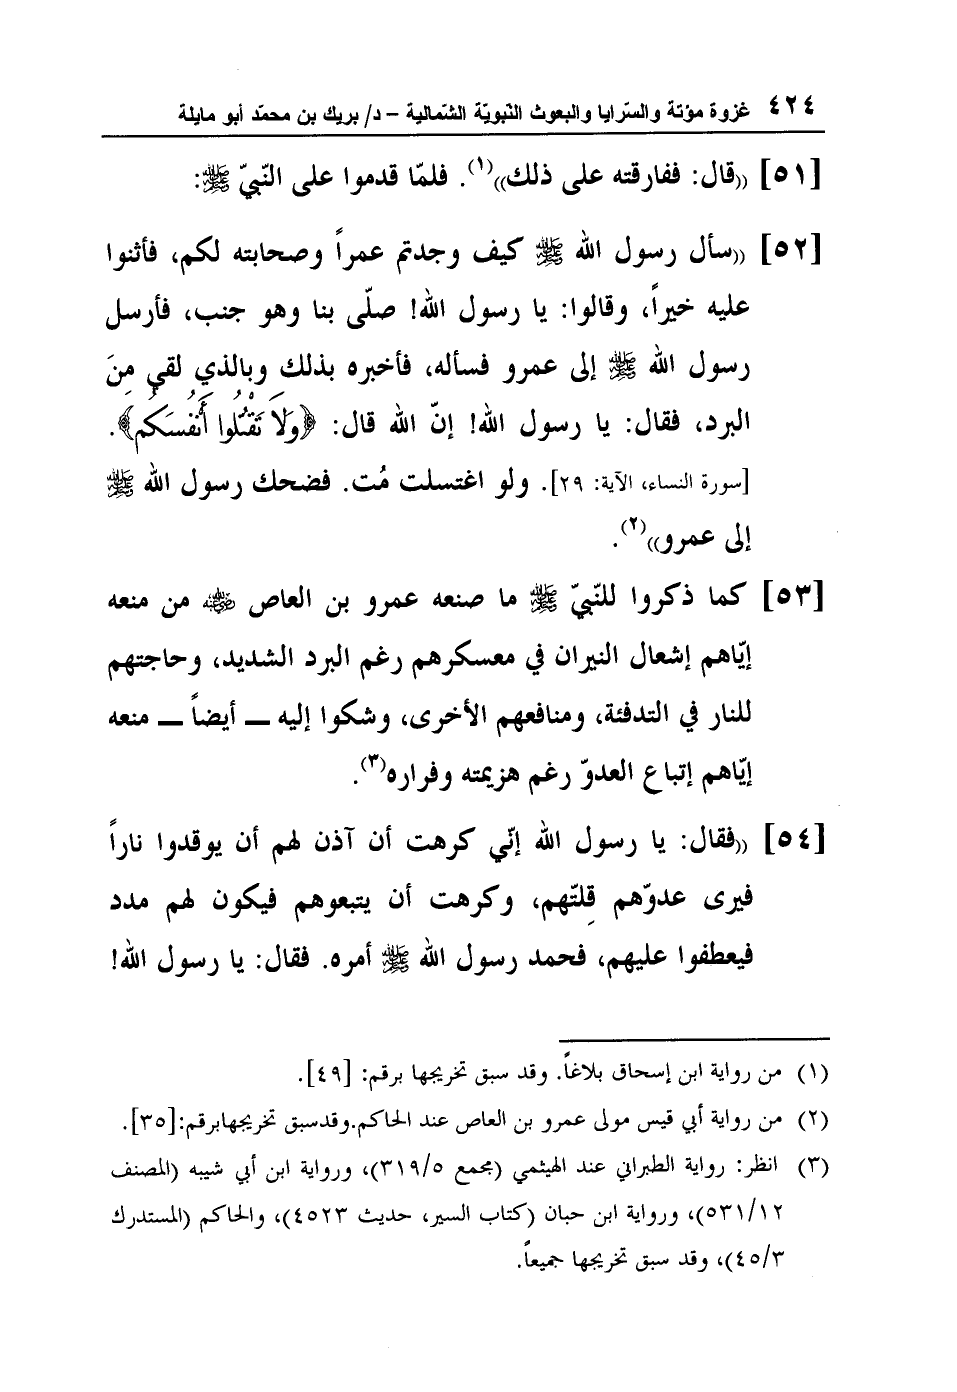 ٤٢٤ غزوة مؤتة والسّرايا والبعوث النّبويّة الشّمالية – د/ بريك بن محمّد أبو مايلة
[٥١] ((قال: ففارقته على ذلك))(١). فلمّا قدموا على النّبيّ ﷺ:
[٥٢] ((سأل رسول الله ﷺ كيف وجدتم عمراً وصحابته لكم، فأثنوا
عليه خيراً، وقالوا: يا رسول الله! صلّى بنا وهو جنب، فأرسل
رسول الله ﷺ إلى عمرو فسأله، فأخبره بذلك وبالذي لقي مِنَ
البرد، فقال: يا رسول الله! إنّ الله قال: ﴿وَلَا تَقْتُلُوا أَنْفُسَكُم﴾.
[سورة النساء، الآية: ٢٩]. ولو اغتسلت مُت. فضحك رسول الله ﷺ
إلى عمرو))(٢).
[٥٣] كما ذكروا للنّبيّ ﷺ ما صنعه عمرو بن العاص رضي الله عنه من منعه
إيّاهم إشعال النيران في معسكرهم رغم البرد الشديد، وحاجتهم
للنار في التدفئة، ومنافعهم الأخرى، وشكوا إليه ــ أيضاً ــ منعه
إيّاهم إتباع العدوّ رغم هزيمته وفراره(٣).
[٥٤] ((فقال: يا رسول الله إنّي كرهت أن آذن لهم أن يوقدوا ناراً
فيرى عدوّهم قِلتّهم، وكرهت أن يتبعوهم فيكون لهم مدد
فيعطفوا عليهم، فحمد رسول الله ﷺ أمره. فقال: يا رسول الله!
(١) من رواية ابن إسحاق بلاغاً. وقد سبق تخريجها برقم: [٤٩].
(٢) من رواية أبي قيس مولى عمرو بن العاص عند الحاكم.وقدسبق تخريجهابرقم:[٣٥].
(٣) انظر: رواية الطبراني عند الهيثمي (مجمع ٣١٩/٥)، ورواية ابن أبي شيبه (المصنف
٥٣١/١٢)، ورواية ابن حبان (كتاب السير، حديث ٤٥٢٣)، والحاكم (المستدرك
٤٥/٣)، وقد سبق تخريجها جميعاً.